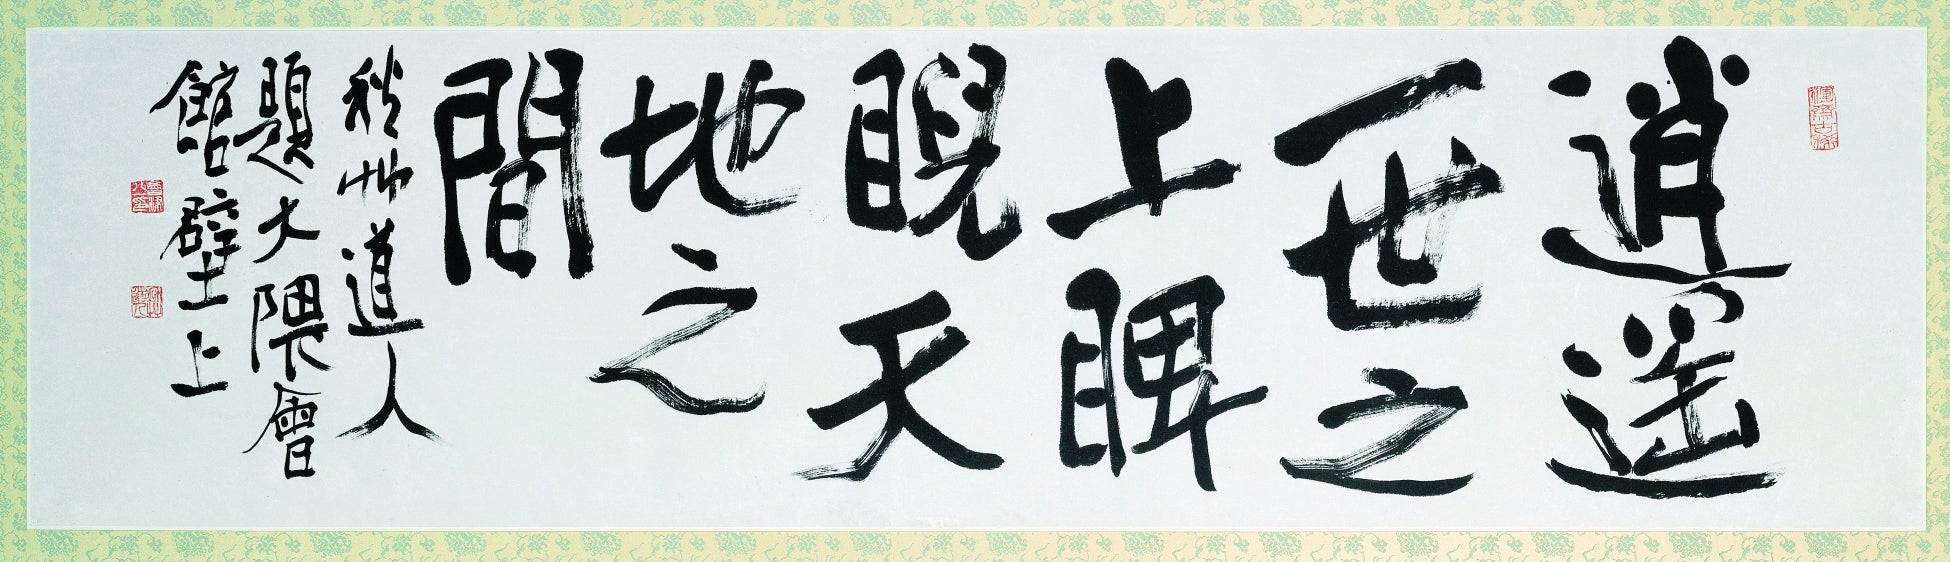 逍遥
一世之
上睥
睨天
地之
間
秋艸道人
題大隈會
館壁上